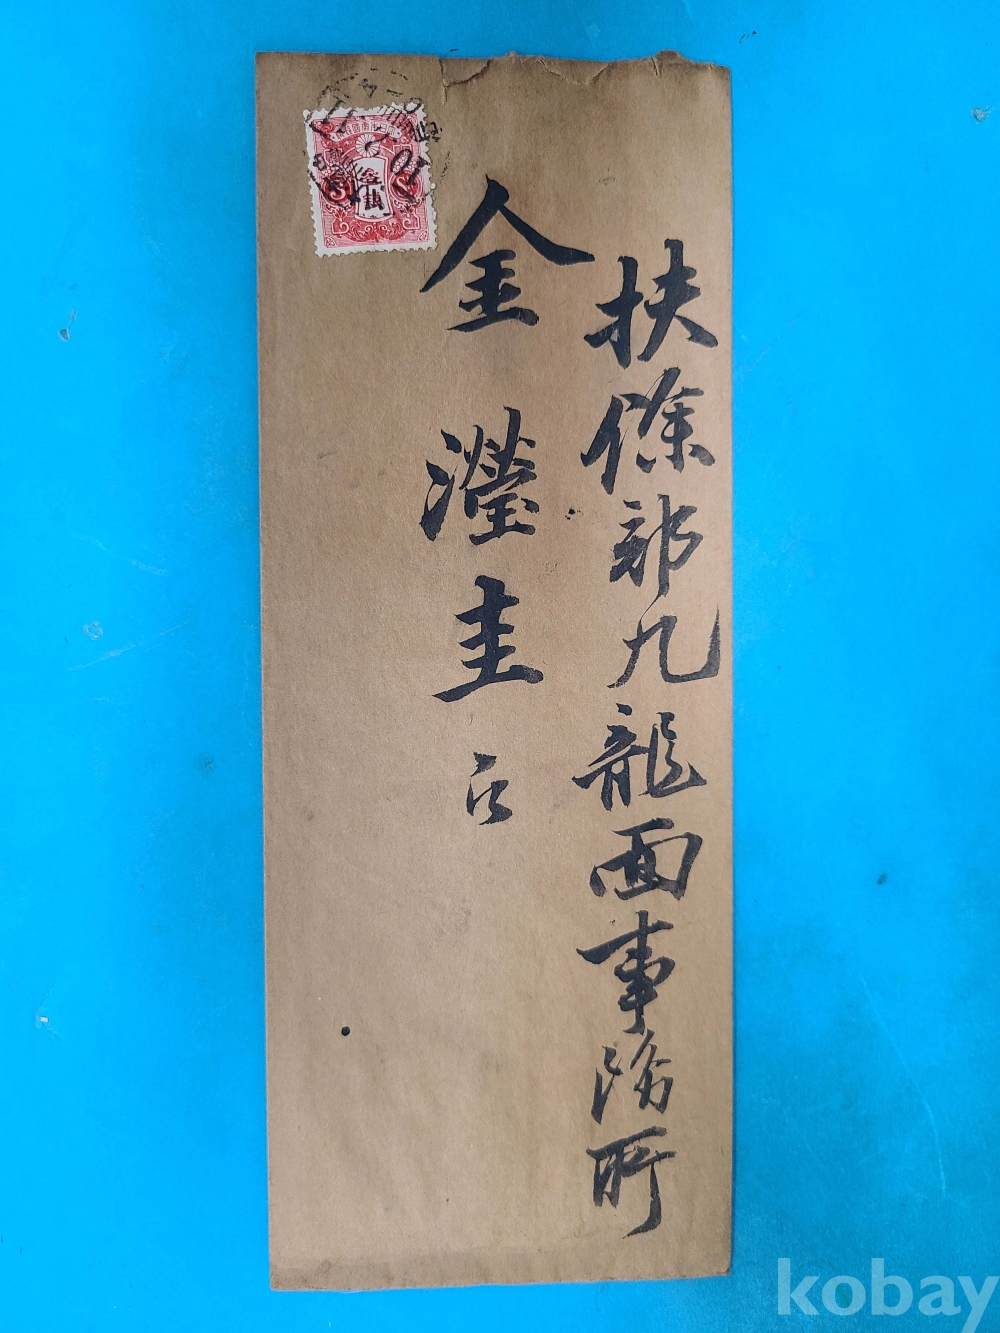 扶餘郡九龍面事務所
金瀅圭 氏
參錢
kobay